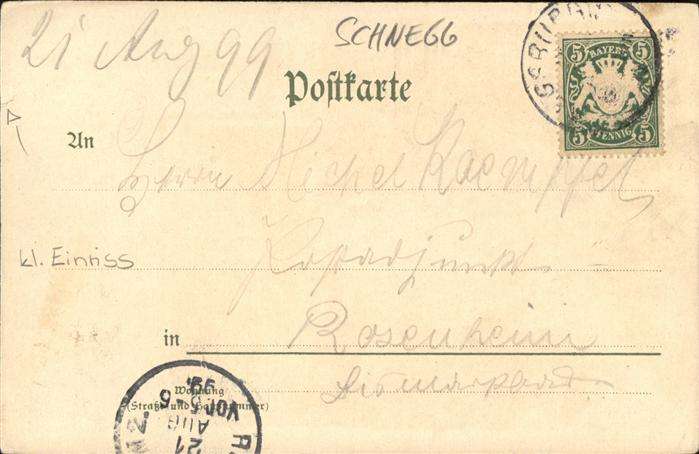 21 Aug 99
SCHNEGG
5 BAYERN 5
5 PFENNIG 5
Postkarte
An
Herrn Michel Kaempfel
kl. Einriss
Postadjunkt
in
Rosenheim
Wohnung
(Straße und Hausnummer)
21
AUG
5-6
VOR
99